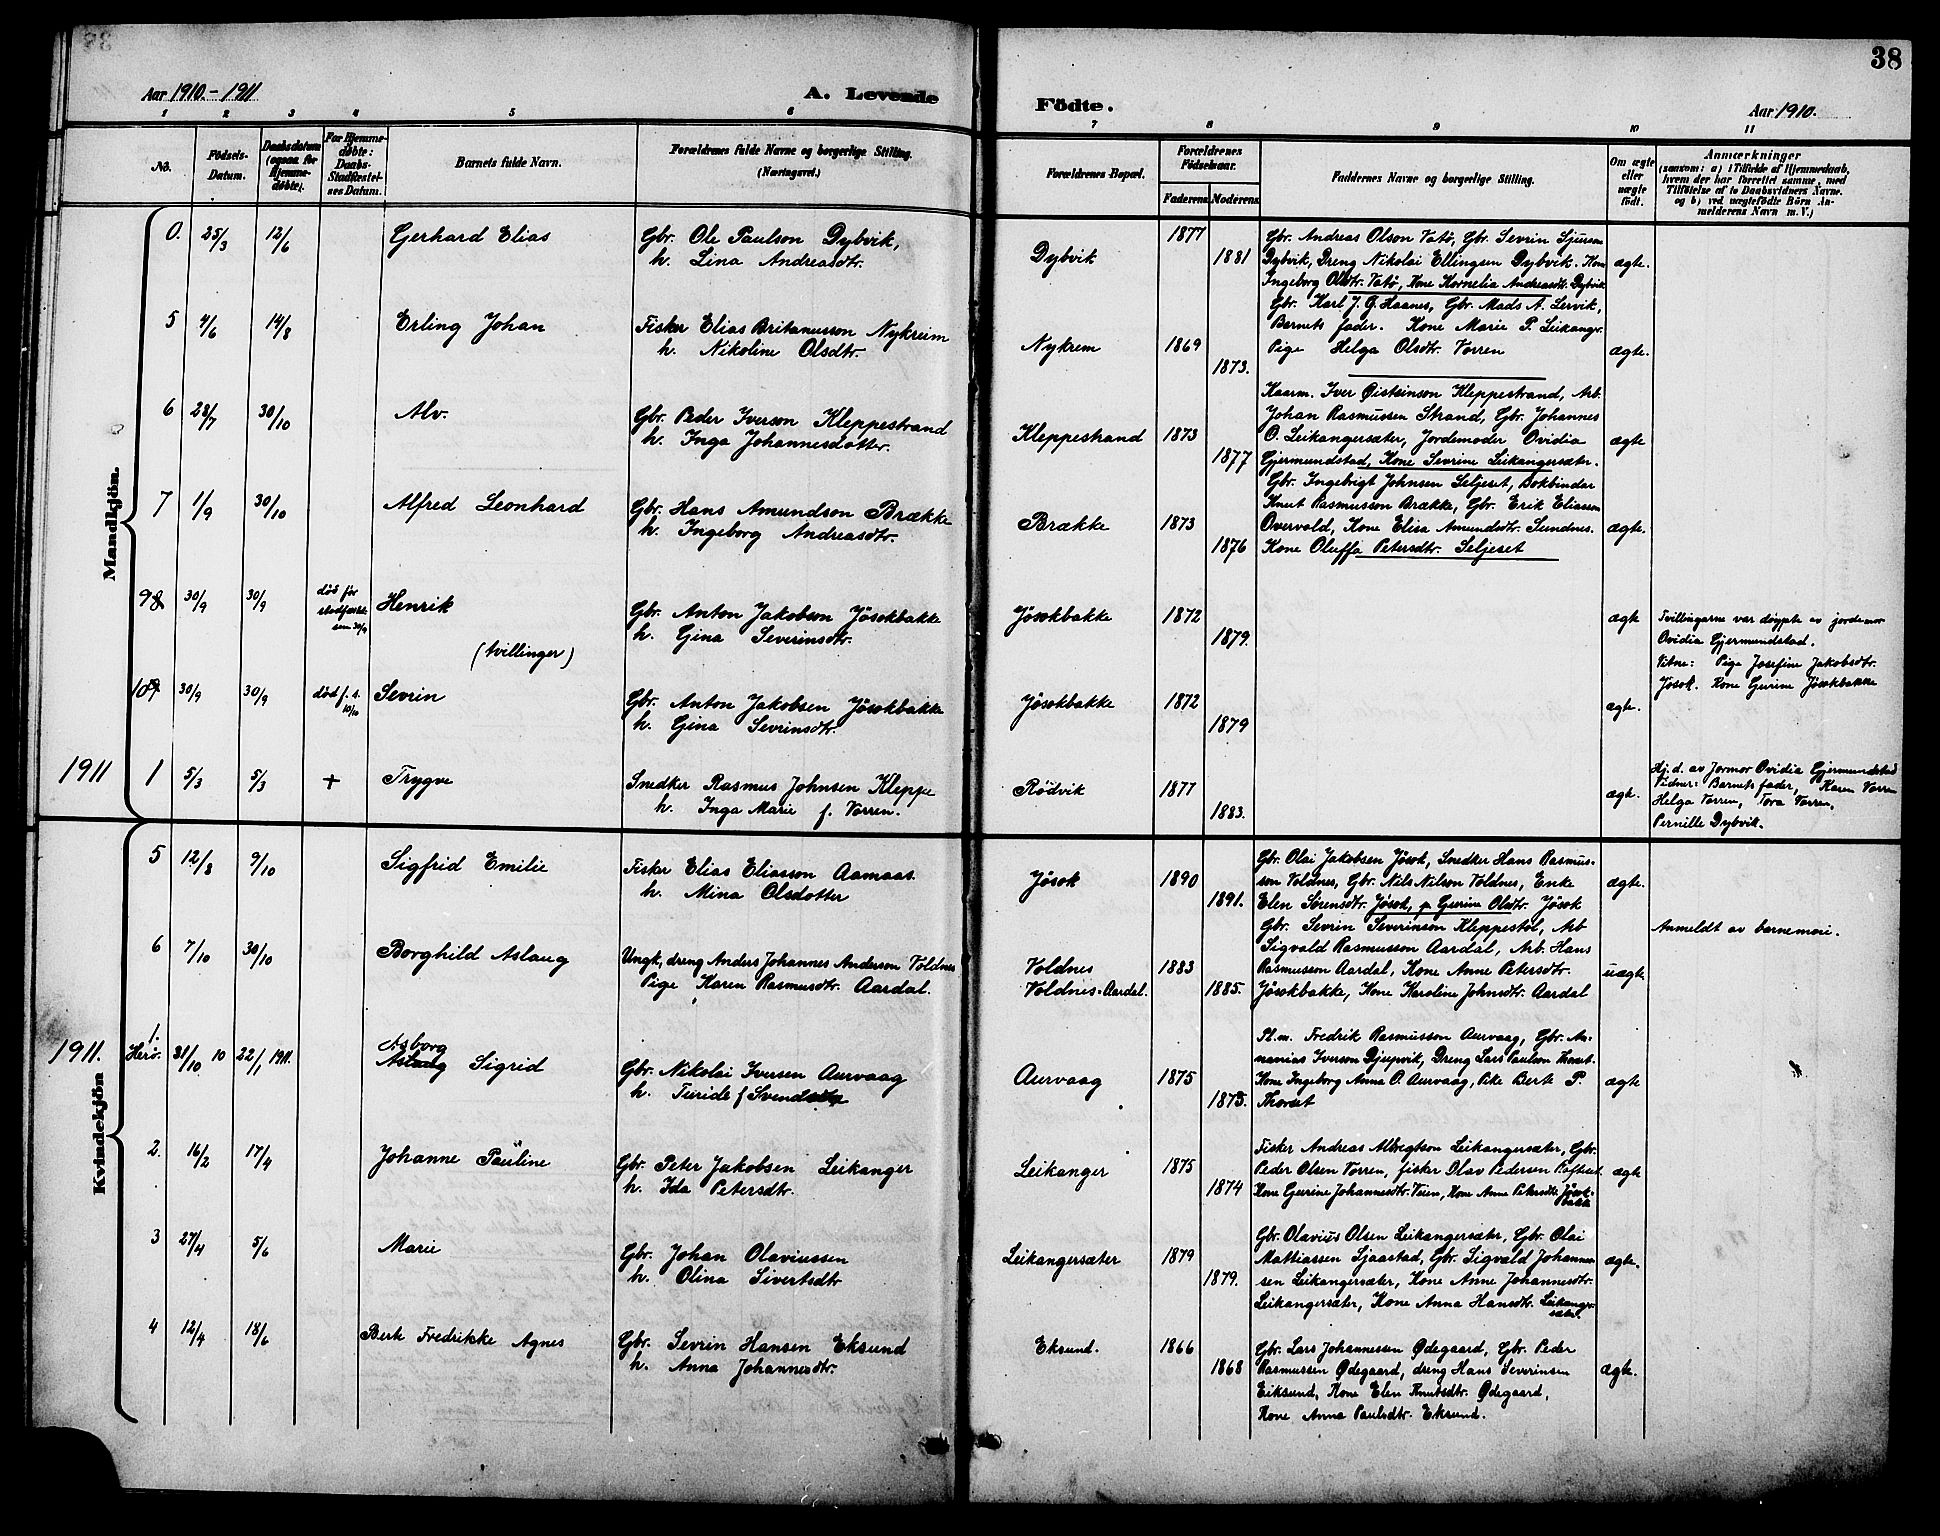 38
Aar 1910.-1911
A. Levende Födte.
Aar 1910.
1 2 3 4 5 6 7 8 9 10 11
No.
Födsels-Datum.
Daabsdatum (ogsaa for Hjemme-döbte).
For Hjemme-döbte: Daabs-Stadfæstel-ses Datum.
Barnets fulde Navn.
Forældrenes fulde Navne og borgerlige Stilling. (Næringsvei.)
Forældrenes Bopæl.
Forældrenes Födselsaar.
Faderens Moderens
Faddernes Navne og borgerlige Stilling.
Om ægte eller uægte födt.
Anmærkninger
(saasom: a) i Tilfælde af Hjemmedaab, hvem der har forrettet samme, med Tilföielse af to Daabsvidners Navne. og b) ved uægtefödte Börn An-melderens Navn m. V.)
Mandkjön.
0. 25/3 12/6 Gerhard Elias
Gbr. Ole Paulson Dybvik,
h. Lina Andreasdtr.
Dybvik 1877 1881
Gbr. Andreas Olson Vatö, Gbr. Sevrin Sjurson
Dybvik, Dreng Nikolai Ellingsen Dybvik. Kone
Ingeborg Olsdtr. Vatö, Kone Kornelia Andreasdt. Dybvik
ægte.
5 4/6 14/8 Erling Johan
Fisker Elias Britanusson Nykreim
h. Nikoline Olsdtr.
Nykrem 1869 1873.
Gbr. Karl J. G. Haanes, Gbr. Mads A. Lervik,
Barnets fader. Kone Marie P. Leikanger
Pige Helga Olsdtr. Vorren
ægte.
6 28/7 30/10 Alv.
Gbr. Peder Iverson Kleppestrand
h. Inga Johannesdotter.
Kleppestrand 1873 1877
Kaarm. Iver Øisteinson Kleppestrand, Arb.
Johan Rasmussen Strand, Gbr. Johannes
O. Leikangersæter, Jordemoder Ovidia
Gjermundstad, Kone Sevrine Leikangersæter.
ægte
7 1/9 30/10 Alfred Leonhard
Gbr. Hans Amundson Brække
h. Ingeborg Andreasdtr.
Brække 1873 1876
Gbr. Ingebrigt Johnsen Seljeset, Bokbinder
Knut Rasmusson Brække, Gbr. Erik Eliassen
Overvold, Kone Elisa Amundsdtr. Sundnes.
Kone Oluffa Petersdtr. Seljeset
ægte.
98 30/9 30/9 død før stadfæstel sen 30/9 Henrik
(tvillinger)
Gbr. Anton Jakobson Jösokbakke
h. Gina Severinsdtr.
Jösokbakke 1872 1879.
ægte
Tvillingarne var døypte av jordemor
Ovidia Gjermundstad.
Vitne: Pige Josefine Jakobsdtr.
Jösok. Kone Gurine Jösokbakke
109 30/9 30/9 död f. s. 10/10 Sevrin
Gbr. Anton Jakobsen Jösokbakke
h. Gina Sevrinsdtr.
Jösokbakke 1872 1879
ægte.
1911 1 5/3 5/3 + Trygve
Snedker Rasmus Johnsen Kleppe
h. Inga Marie f. Vorren.
Rödvik 1877 1883.
ægte.
Hj.d. av Jormor Ovidia Gjermundstad
Vidner: Barnets fader, Karen Vorren
Helga Vorren, Tora Vorren,
Pernille Dybvik.
Kvindekjön
5 12/8 9/10 Sigfrid Emilie
Fisker Elias Eliasson Aamaas.
h. Mina Olsdotter
Jösok 1890 1891.
Gbr. Olai Jakobsen Jösok, Snedker Hans Rasmus-
son Voldnes, Gbr. Nils Nilson Voldnes, Enke
Elen Sörensdtr. Jösok, p Gurine Olsdtr. Jösok
ægte.
6 7/10 30/10 Borghild Aslaug
Ungk, dreng Anders Johannes Anderson Voldnes
Pige Karen Rasmusdtr. Aardal.
Voldnes
Voldnes-Aardal. 1883 1885.
Gbr. Sevrin Severinson Kleppestöl, Arb
Sigvald Rasmusson Aardal, Arb. Hans
Rasmusson Aardal, Kone Anne Petersdtr.
Jösokbakke, Kone Karoline Johnsdtr. Aardal
uægte
Anmeldt av barnemori.
1911. 1. Herö. 31/10 10 22/1 1911. Asborg
Aslaug Sigrid
Gbr. Nikolai Iversen Aurvaag
h. Turide f Svendsdtr
Aurvaag 1875 1873.
Pl.m. Fredrik Rasmusson Aurvaag, Gbr. An-
nanias Iverson Djupvik, Dreng Lars Paulson Thorset.
Kone Ingeborg Anna O. Aurvaag, Pike Berte P.
Thorset
ægte
2. 16/2 17/4 Johanne Pauline
Gbr. Peter Jakobsen Leikanger
h. Ida Petersdtr.
Leikanger 1875 1874
Fisker Andreas Albregtson Leikangersæter, Gbr.
Peder Olsen Vorren, fisker Olav Pedersen Raftset
Kone Gurine Johannesdtr. Veien, Kone Anne Petersdtr Jösok-
bakke
ægte
3 27/4 5/6 Marie
Gbr. Johan Olaviussen
h. Olina Sivertsdtr
Leikangersæter 1879 1879.
Gbr. Olavius Olsen Leikangersæter, Gbr. Olai
Mattiassen Sjaastad, Gbr. Sigvald Johannes-
sen Leikangersæter, Kone Anne Johannesdtr.
Leikangersæter, Kone Anna Hansdtr. Leikanger-
sæter.
ægte.
4 12/4 18/6 Berte Fredrikke Agnes
Gbr. Sevrin Hansen Eksund
h. Anna Johannesdtr.
Eksund. 1866 1868
Gbr. Lars Johannessen Ødegaard, Gbr. Peder
Rasmussen Ødegaard, dreng Hans Severinsen
Eiksund, Kone Elen Knutsdtr. Ødegaard,
Kone Anna Paulsdtr. Eksund.
ægte.